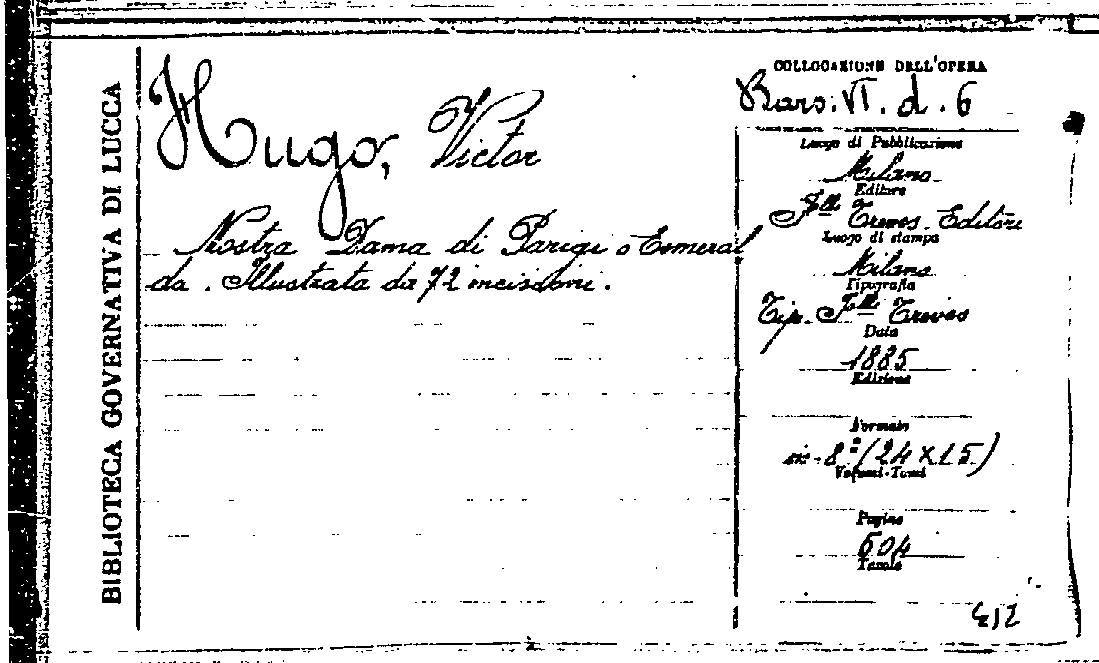 BIBLIOTECA GOVERNATIVA DI LUCCA
Hugo, Victor
Nostra Dama di Parigi o Esmeral
da. Illustrata da 72 incisioni.
COLLOCAZIONE DELL'OPERA
Bars. VI. d. 6
Luogo di Pubblicazione
Milano
Editore
F.lli Treves. Editori
Luogo di stampa
Milano
Tipografia
Tip. F.lli Treves
Data
1885
Edizione
Formato
in-8° (24 x 15)
Volumi-Tomi
Pagine
504
Tavole